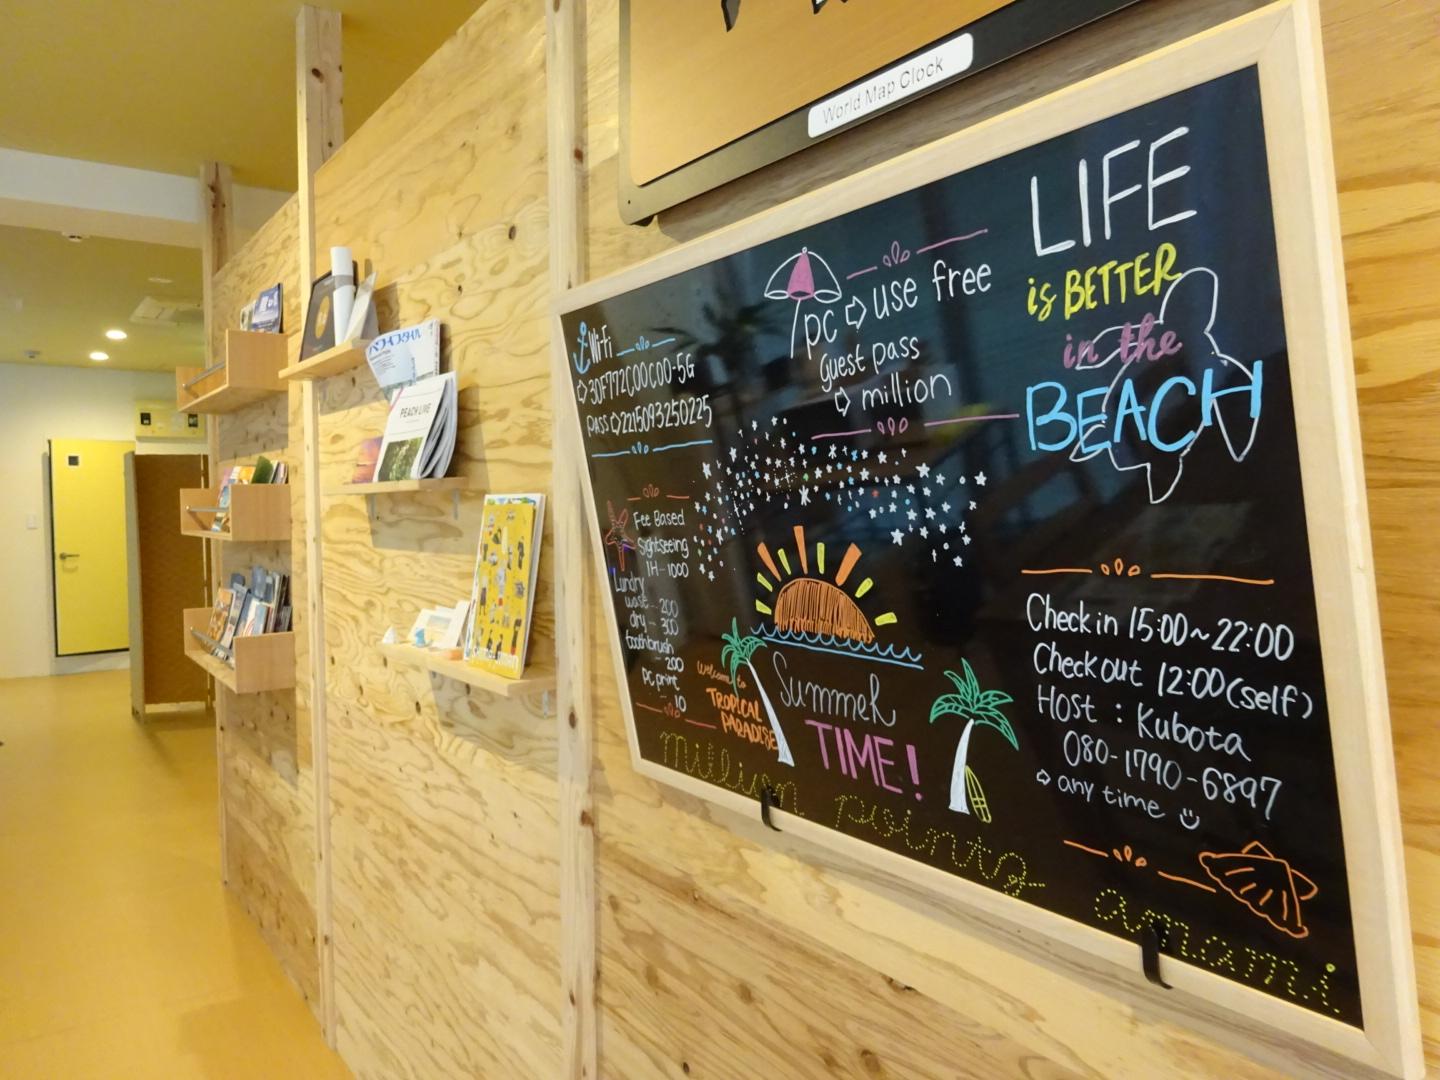 World Map Clock
WiFi
⇨30F772C00C00-5G
pass⇨2215093250225
pc ⇨ use free
guest pass
⇨ million
LIFE
is BETTER
in the
BEACH
Fee Based
Sightseeing
1H-1000
Lundry
wash - 200
dry - 300
toothbrush
- 200
pc print
- 10
Welcome to
TROPICAL
PARADISE
Summer
TIME!
Check in 15:00~22:00
Check out 12:00(self)
Host : Kubota
080-1790-6897
⇨ any time
million pointz amami
PEACH LIVE